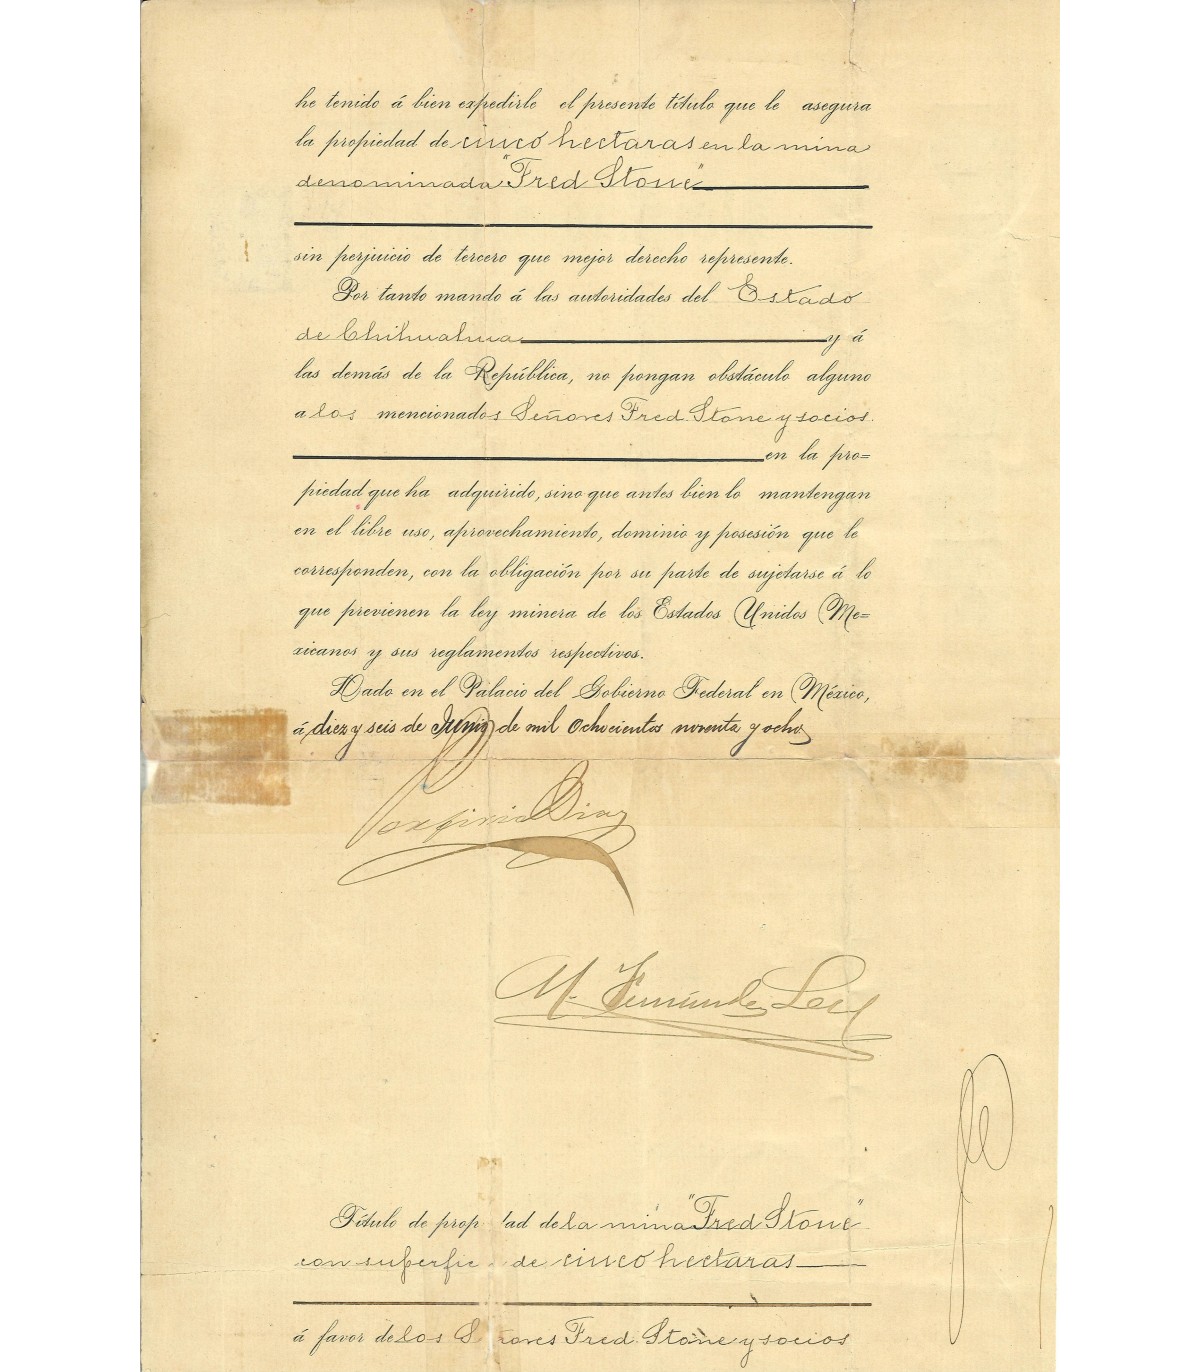 he tenido á bien expedirle el presente título que le asegura
la propiedad de cinco hectaras en la mina
denominada "Fred Stone"
sin perjuicio de tercero que mejor derecho represente.
Por tanto mando á las autoridades del Estado
de Chihuahua y á
las demás de la República, no pongan obstáculo alguno
a los mencionados Señores Fred Stone y socios.
en la pro=
piedad que ha adquirido, sino que antes bien lo mantengan
en el libre uso, aprovechamiento, dominio y posesión que le
corresponden, con la obligación por su parte de sujetarse á lo
que previenen la ley minera de los Estados Unidos Me=
xicanos y sus reglamentos respectivos.
Dado en el Palacio del Gobierno Federal en México,
á diez y seis de Junio de mil ochocientos noventa y ocho
Porfirio Diaz
M. Fernández Leal
Título de prop dad de la mina "Fred Stone"
con superfic de cinco hectaras
á favor de los Señores Fred Stone y socios